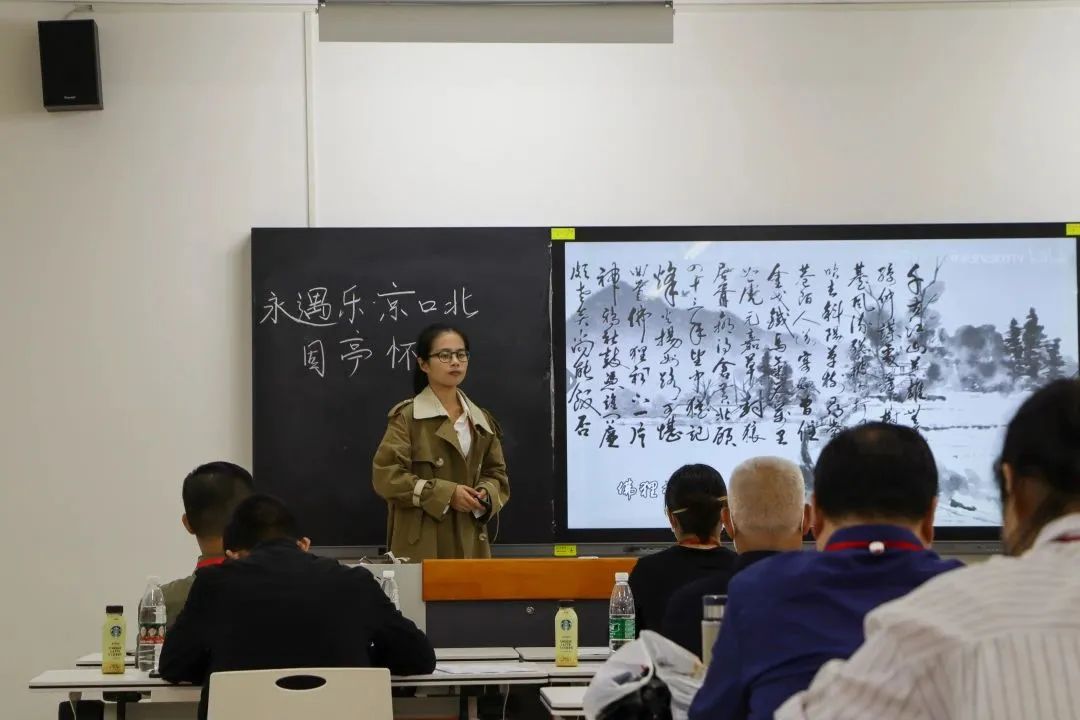 永遇乐·京口北
固亭怀
千古江山英雄
孙仲谋处
吹去斜阳草树寻常
巷陌人道寄奴曾住
金戈铁马气吞万里
如虎元嘉草草封狼
居胥赢得仓皇北顾
四十三年望中犹记
烽火扬州路可堪
回首佛狸祠下一片
神鸦社鼓凭谁问廉
颇老矣尚能饭否
佛狸